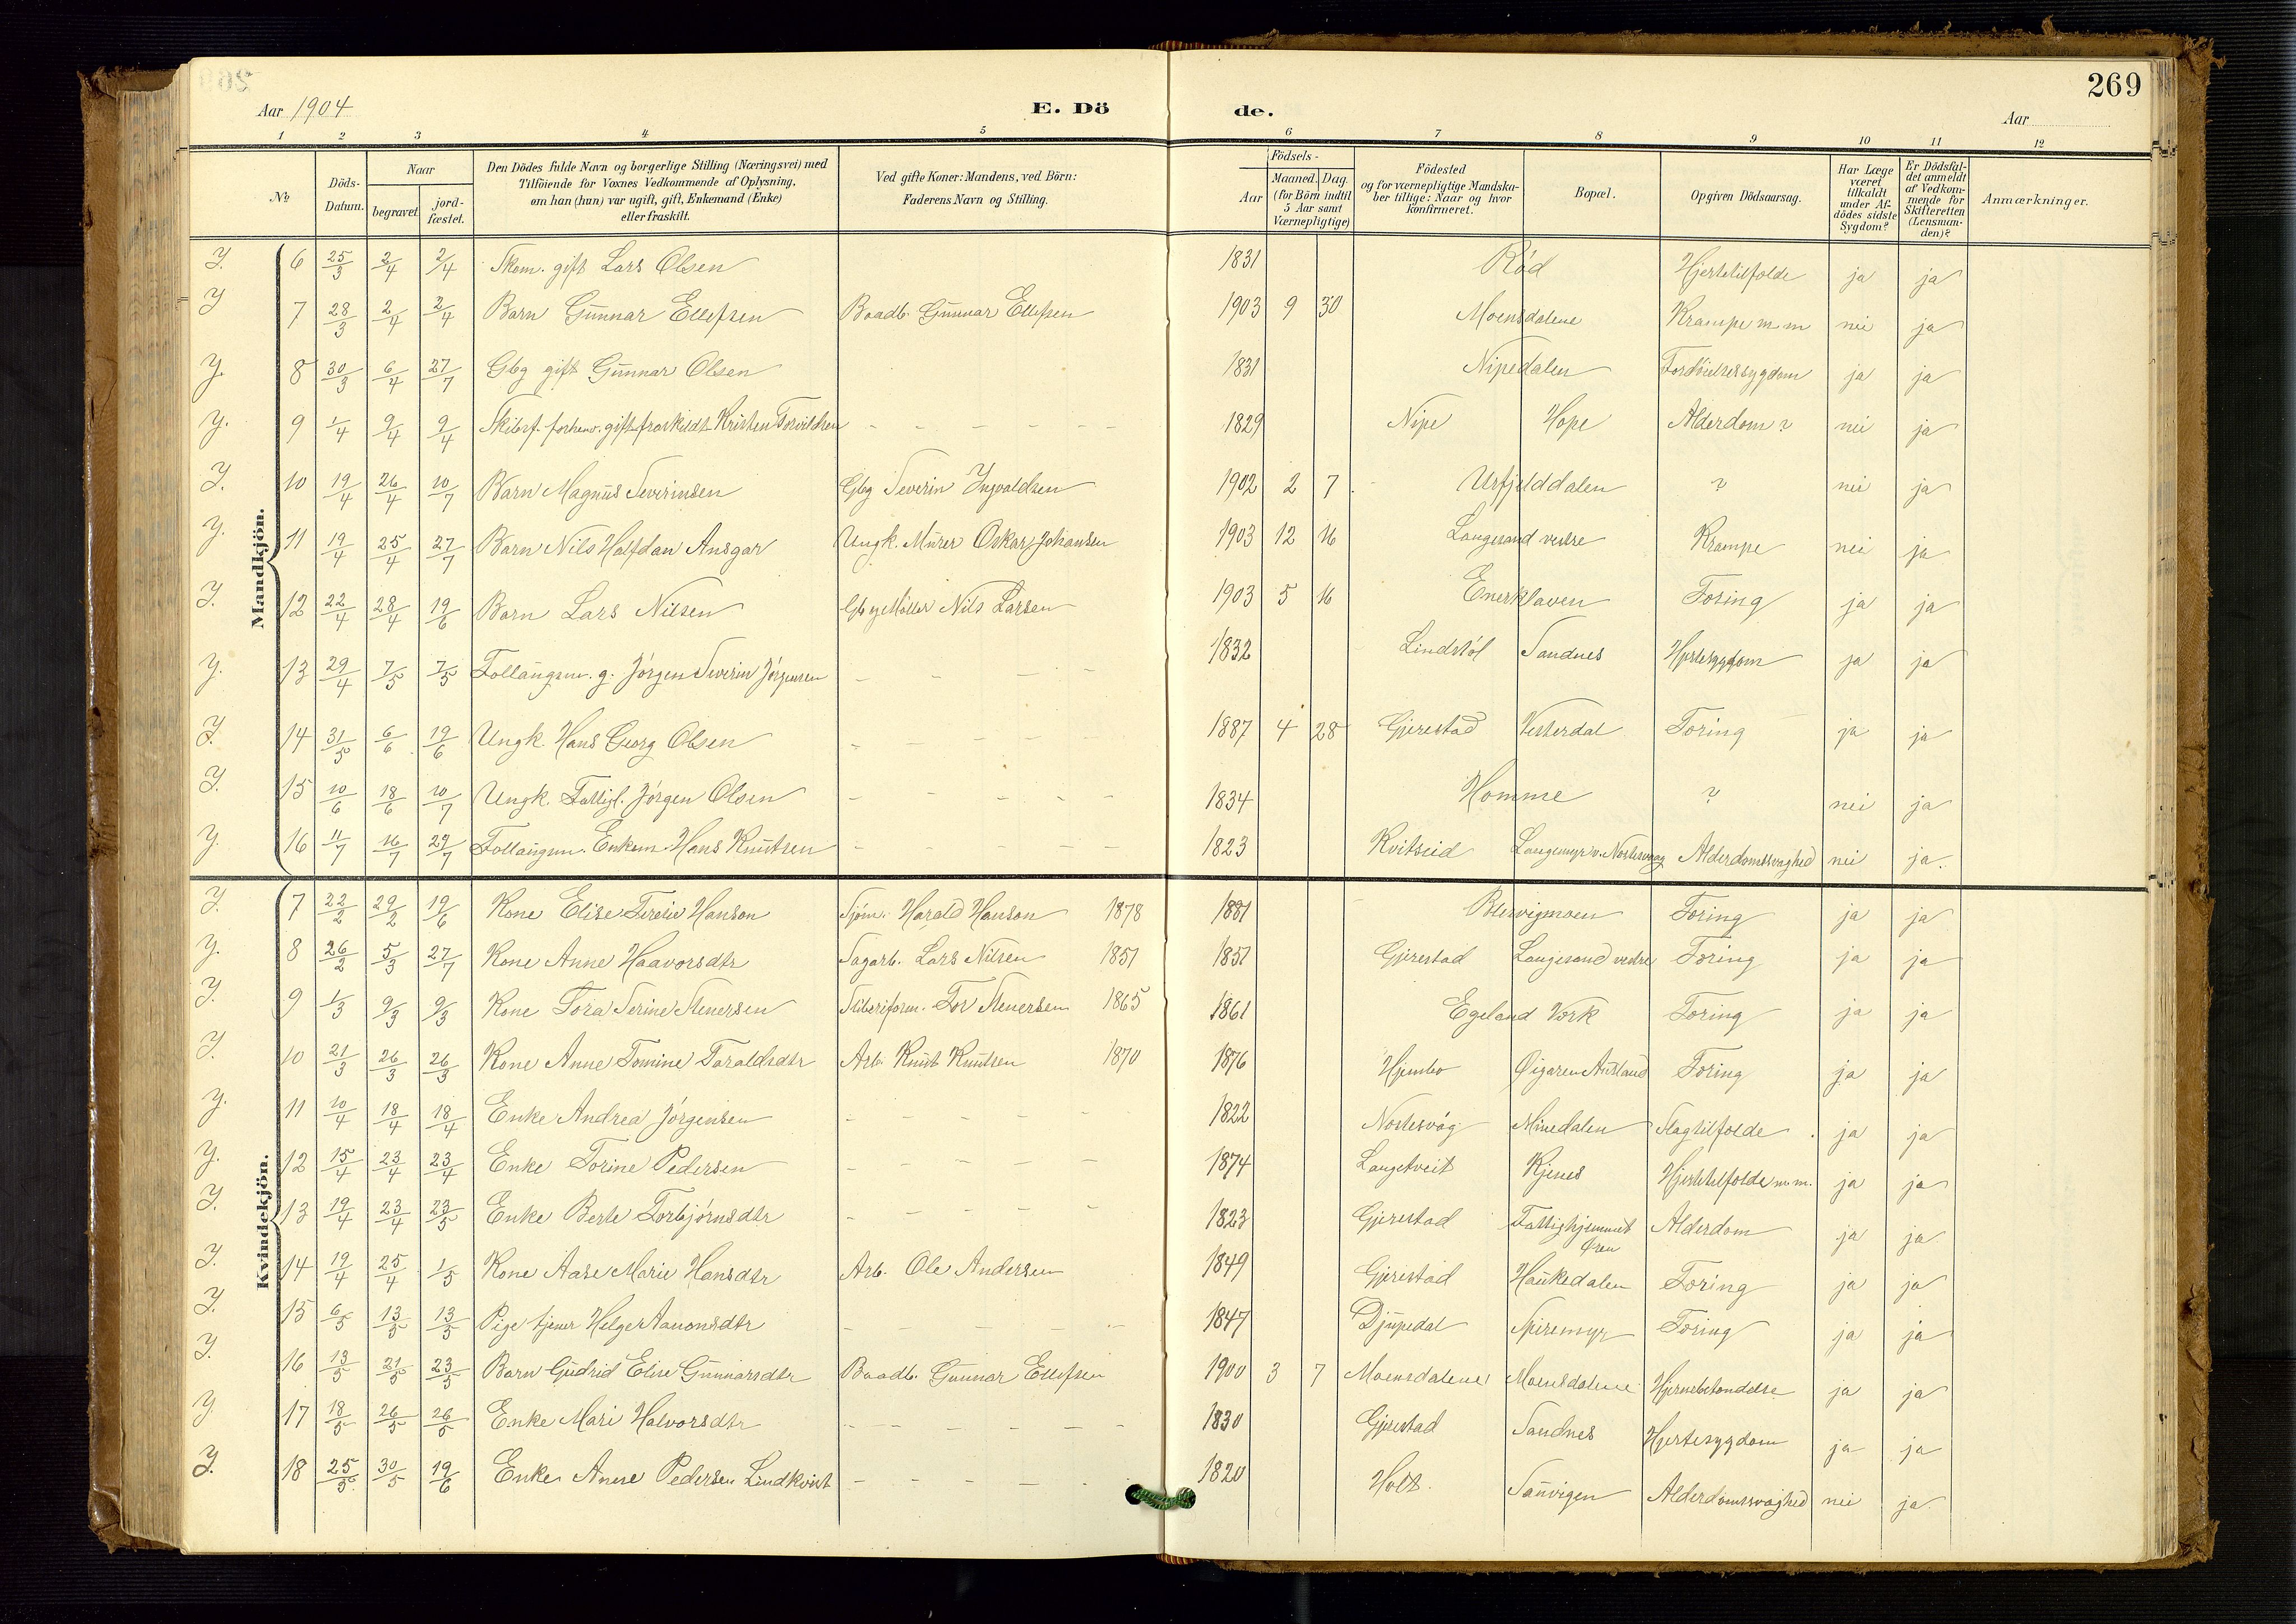 269
Aar 1904
E. Dö
de.
Aar
1 2 3 4 5 6 7 8 9 10 11 12
No
Döds-Datum.
Naar
begravet
jord-fæstet.
Den Dödes fulde Navn og borgerlige Stilling (Næringsvei) med
Tilföiende for Voxnes Vedkommende af Oplysning,
om han (hun) var ugift, gift, Enkemand (Enke)
eller fraskilt.
Ved gifte Koner: Mandens, ved Börn:
Faderens Navn og Stilling.
Födsels-
Aar
Maaned. Dag.
(for Börn indtil
5 Aar samt
Værnepligtige)
Födested
og for værnepligtige Mandska-
ber tillige: Naar og hvor
konfirmeret.
Bopæl.
Opgiven Dödsaarsag.
Har Læge
været
tilkaldt
under Af-
dödes sidste
Sygdom?
Er Dödsfal-
det anmeldt
af Vedkom-
mende for
Skifteretten
(Lensman-
den)?
Anmærkninger.
Mandkjön.
J. 6 25/3 2/4 2/4 Skom. gift Lars Olsen 1831 Röd Hjertetilfolde ja ja
J 7 28/3 2/4 2/4 Barn Gunnar Ellefsen Baadb. Gunnar Ellefsen 1903 9 30 Moensdalene Krampe m m nei ja
J. 8 30/3 6/4 27/7 Gbg gift Gunnar Olsen 1831 Nipedalen ja ja
J. 9 1/4 9/4 9/4 forhenv. gift fraskildt Kristen 1829 Nipe Hope Alderdom? nei ja
J. 10 19/4 26/4 10/7 Barn Magnus Severinsen Gbg Severin Ingvaldsen 1902 2 7 Urfjelddalen ? nei ja
J. 11 19/4 25/4 27/7 Barn Nils Halfdan Ansgar Ungk. Murer Oskar Johansen 1903 12 16 Langesand vestre Krampe nei ja
J. 12 22/4 28/4 19/6 Barn Lars Nilsen Gbg Nils Larsen 1903 5 16 Enerklaven Toring ja ja
J. 13 29/4 7/5 7/5 g. Jörgen Severin Jörgensen 1832 Lindstöl Sandnes Hjertesygdom ja ja
J. 14 31/5 6/6 19/6 Ungk. Hans Georg Olsen 1887 4 28 Gjerestad Vesterdal Toring ja ja
J. 15 10/6 18/6 10/7 Ungk. Fattigl. Jörgen Olsen 1834 Homme ? nei ja
J. 16 11/7 16/7 27/7 Enkem. Hans Knutsen 1823 Kvitseid Langemyr v. Alderdomssvaghed nei ja.
Kvindekjön.
J. 7 22/2 29/2 19/6 Kone Elise Teresie Hanson Sjöm. Harald Hanson 1878 1881 Toring ja ja
J. 8 26/2 5/3 27/7 Kone Anne Haavorsdtr Sagarb. Lars Nilsen 1851 1851 Gjerestad Langesand vestre Toring ja ja
J. 9 1/3 9/3 9/3 Kone Tora Serine Stenersen Tor Stenersen 1865 1861 Egeland Verk Toring ja ja
J. 10 21/3 26/3 26/3 Kone Anne Tomine Taraldsdtr Arb. Knut Knutsen 1870 1876 Toring ja ja
J. 11 10/4 18/4 18/4 Enke Andrea Jörgensen 1822 Nostesvåg Minedalen Slagtilfolde ja ja
J. 12 15/4 23/4 23/4 Enke Torine Pedersen 1874 Langetveit Kjenes Hjertetilfolde m.m. ja ja
J. 13 19/4 23/4 23/5 Enke Berte Torbjörnsdtr 1823 Gjerestad Fattighjemmet Alderdom ja ja
J. 14 19/4 25/4 1/5 Kone Aase Marie Hansdtr Arb. Ole Andersen 1849 Gjerestad Haukedalen Toring ja ja
J. 15 6/5 13/5 13/5 Pige tjener Helge Aanonsdtr 1847 Djupedal Spiremyr Toring ja ja
J. 16 13/5 21/5 23/5 Barn Gudrid Elise Gunnarsdtr Baadb. Gunnar Ellefsen 1900 3 7 Moensdalene Moensdalene Hjernebetændelse ja ja
J 17 18/5 26/5 26/5 Enke Mari Halvorsdtr 1830 Gjerestad Sandnes Hjertesygdom ja ja
J. 18 25/5 30/5 19/6 Enke Anne Pedersen Lindkvist 1820 Holt. Sauvigen Alderdomssvaghed nei ja.